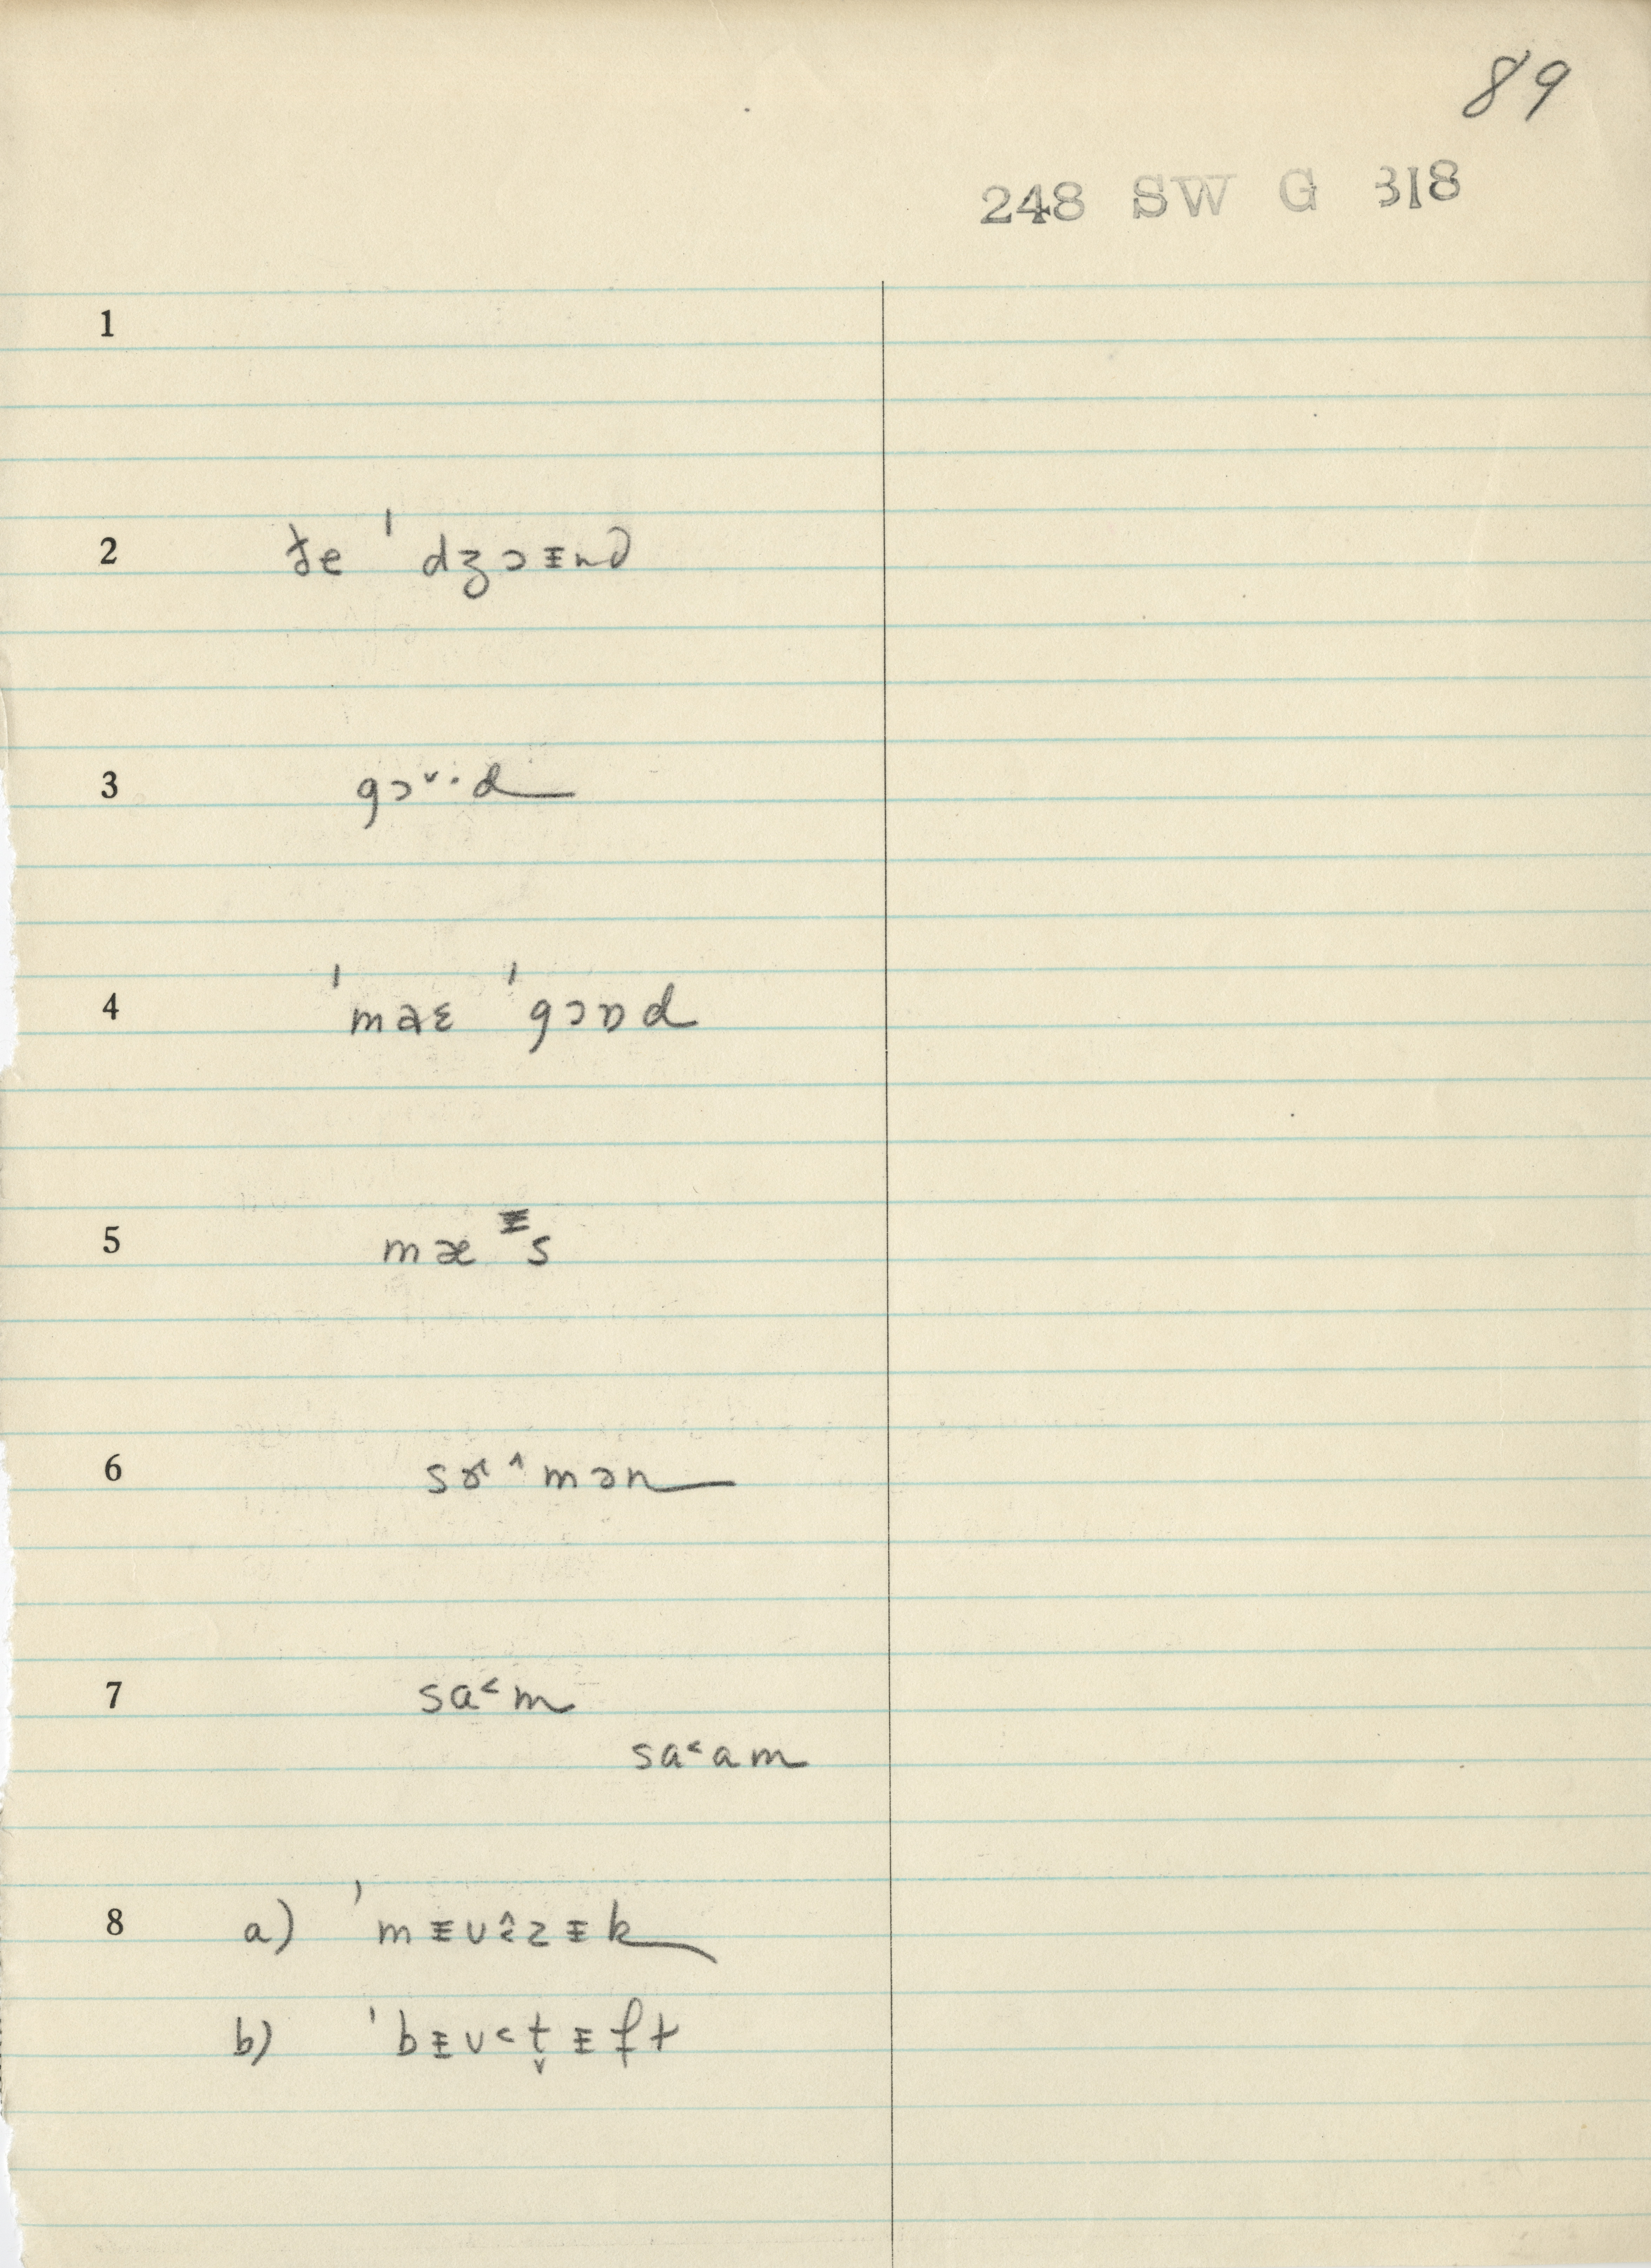 89
248 SW G 318
1
2 ðe ˈ dʒɔᵻnd
3 gɔ˅·d
4 ˈmaɛ ˈgɔɒd
5 mæᵻs
6 sɚ˄məN
7 sa˂m
sa˂am
8 a) ˈmᵻuzᵻk
b) ˈbᵻu˂t̬ᵻft